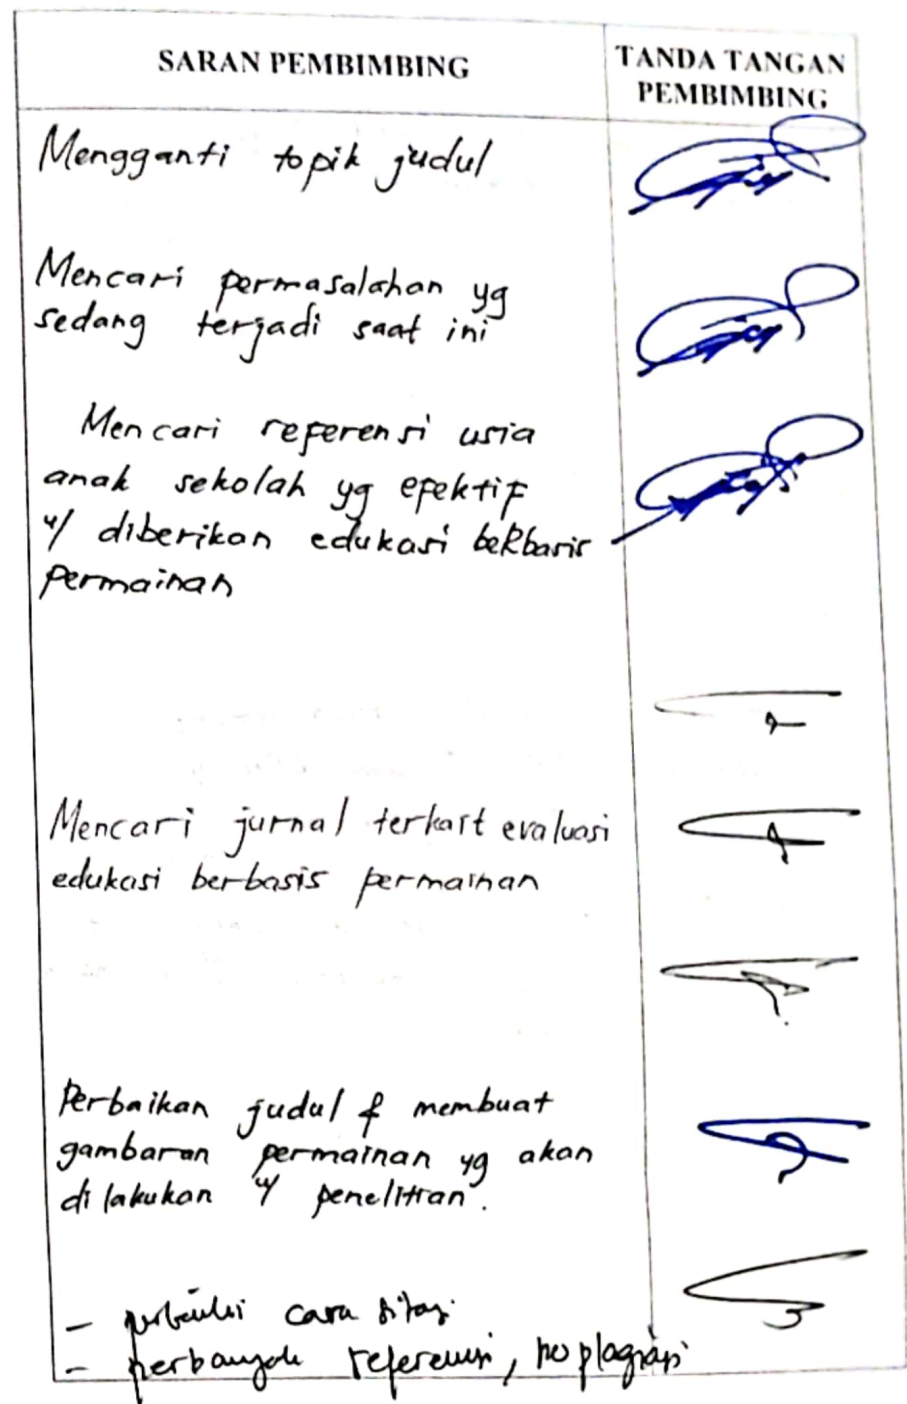 SARAN PEMBIMBING
TANDA TANGAN
PEMBIMBING
Mengganti topik judul
Mencari permasalahan yg
sedang terjadi saat ini
Mencari referensi usia
anak sekolah yg efektif
u/ diberikan edukasi berbasis
permainan
Mencari jurnal terkait evaluasi
edukasi berbasis permainan
Perbaikan judul & membuat
gambaran permainan yg akan
dilakukan u/ penelitian.
- perbaiki cara sitasi
- perbanyak referensi, no plagiasi